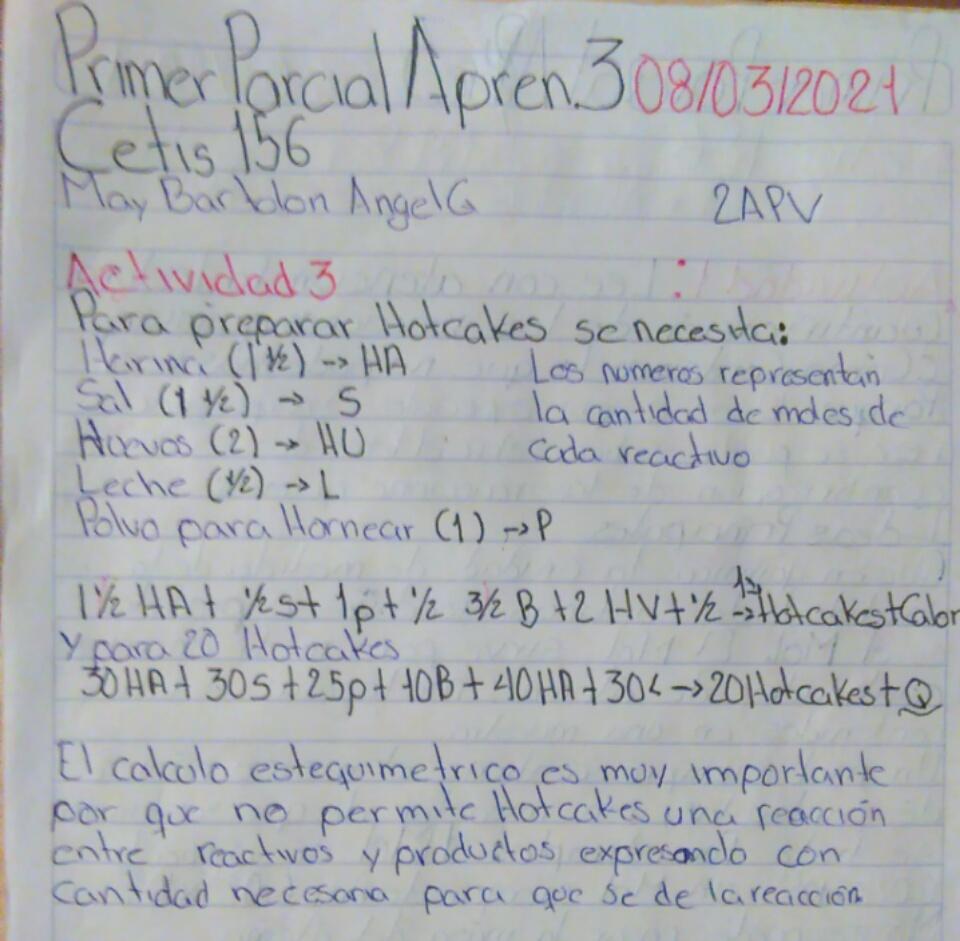 Primer Parcial Apren.3 08/03/2021
Cetis 156
May Bartolon Angel G 2APV
Actividad 3 :
Para preparar Hotcakes se necesita:
Harina (1 ½) → HA
Sal (1 ½) → S
Huevos (2) → HU
Leche (½) → L
Polvo para Hornear (1) → P
Los numeros representan
la cantidad de moles de
cada reactivo
1 ½ HA + ½ s + 1p + ½ 3/2 B + 2 HV + ½ → Hotcakes + Calor
Y para 20 Hotcakes
30HA + 30s + 25p + 10B + 40HA + 30L → 20 Hotcakes + Q
El calculo estequimetrico es muy importante
por que no permite Hotcakes una reacción
entre reactivos y productos, expresando con
cantidad necesaria para que se de la reacción